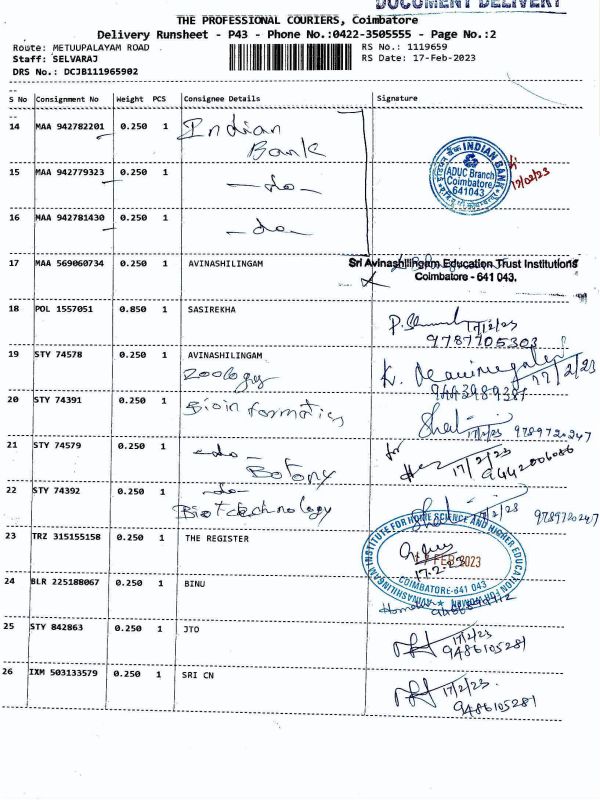 DOCUMENT DELIVERY
THE PROFESSIONAL COURIERS, Coimbatore
Delivery Runsheet - P43 - Phone No.:0422-3505555 - Page No.:2
Route: METUUPALAYAM ROAD RS No.: 1119659
Staff: SELVARAJ RS Date: 17-Feb-2023
DRS No.: DCJB111965902
S No Consignment No Weight PCS Consignee Details Signature
14 MAA 942782201 0.250 1 Indian Bank
15 MAA 942779323 0.250 1 -do-
INDIAN BANK
ADUC Branch
Coimbatore
641043
17/02/23
16 MAA 942781430 0.250 1 -do-
17 MAA 569060734 0.250 1 AVINASHILINGAM
Sri Avinashilingam Education Trust Institutions
Coimbatore - 641 043.
18 POL 1557051 0.850 1 SASIREKHA
17/2/23
9787705303
19 STY 74578 0.250 1 AVINASHILINGAM
Zoology
17/2/23
20 STY 74391 0.250 1 Bioinformatics
9789720247
21 STY 74579 0.250 1 -do-
Botony
for
17/2/23
9442006086
22 STY 74392 0.250 1 -do-
Biotechnology
9789720247
23 TRZ 315155158 0.250 1 THE REGISTER
AVINASHILINGAM INSTITUTE FOR HOME SCIENCE AND HIGHER EDUCATION FOR WOMEN
17 FEB 2023
17.2.23
COIMBATORE-641 043
24 BLR 225188067 0.250 1 BINU
25 STY 842863 0.250 1 JTO
17/2/23
9486105281
26 IXM 503133579 0.250 1 SRI CN
17/2/23.
9486105281